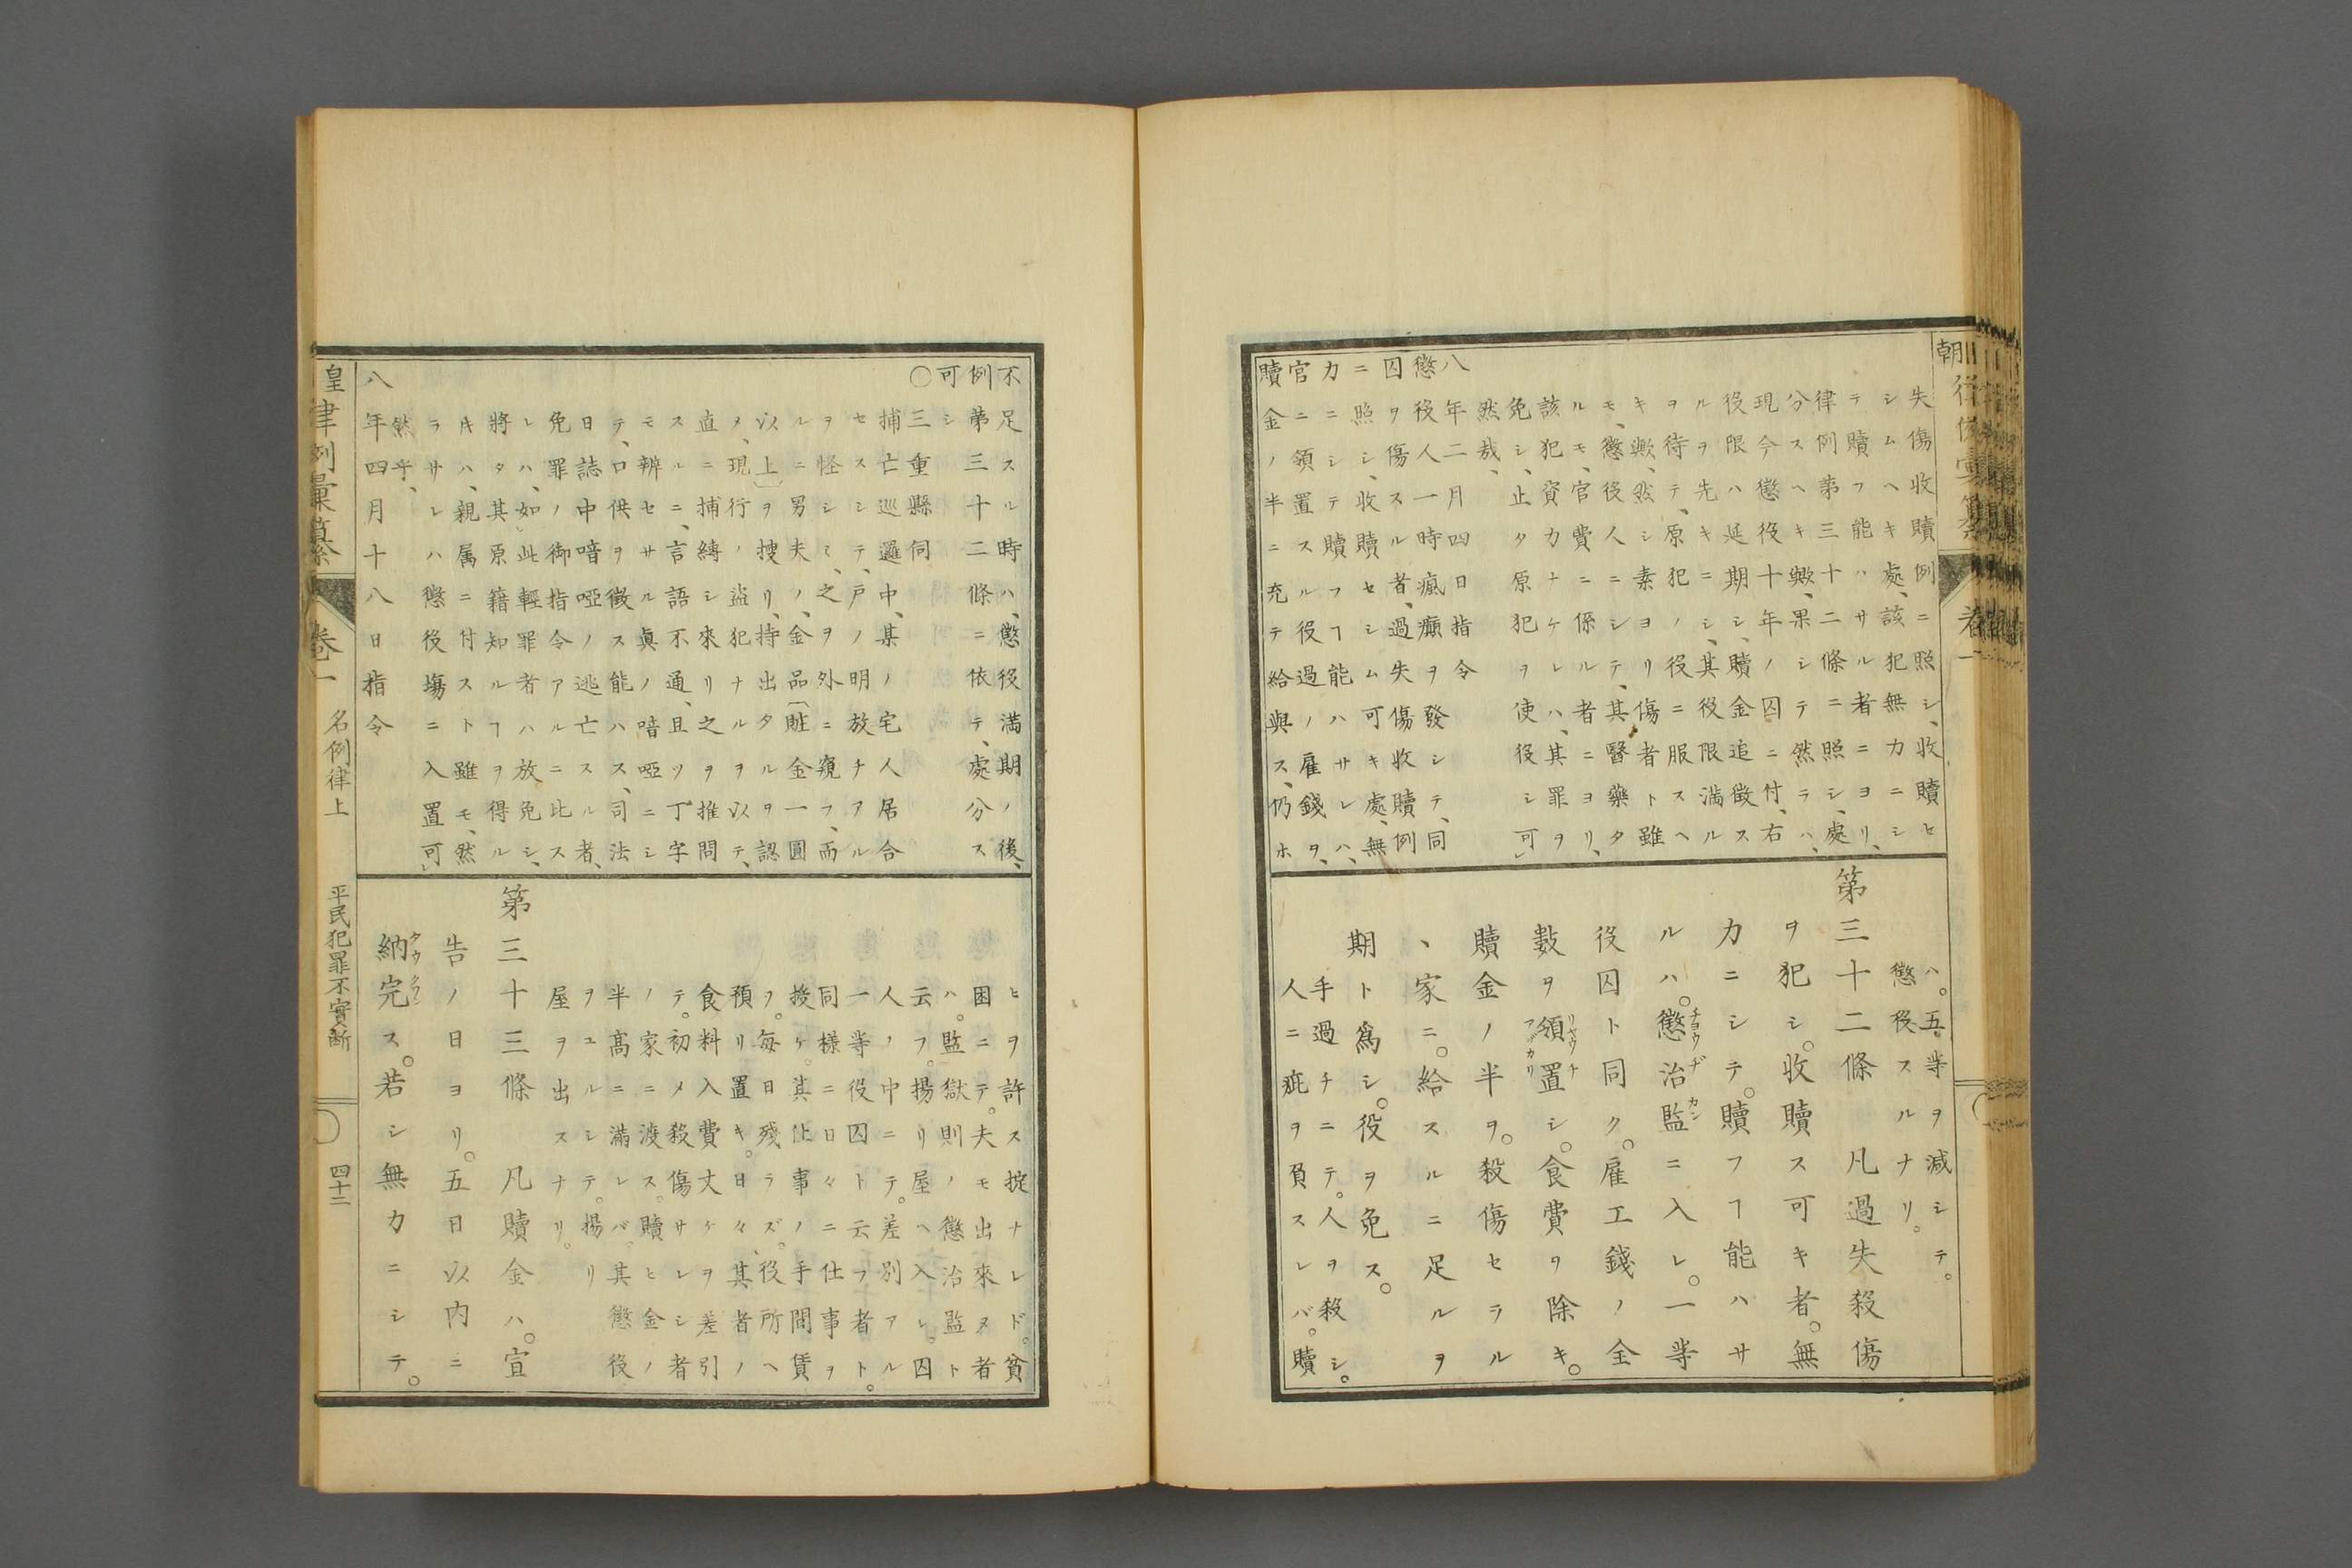 失傷收贖例ニ照シ、收贖セ
シムヘキ處、該犯無力ニシ
テ贖フ能ハサル者ニヨリ、
律例第三十二條ニ照シ、處
分スヘキ歟、果シテ然ラハ、
現今懲役十年ノ囚ニ付、右
役限ハ延期シ、贖金追徴ス
ルヲ先キニシ、其役限滿ル
ヲ待テ、原犯ノ役ニ服スヘ
キ歟、然シ素ヨリ傷者ト雖
モ、懲役人ニシテ、其醫藥タ
ルモ、官費ニ係ル者ニヨリ、
該犯資力ナケレハ、其罪ヲ
免シ、止タ原犯ヲ使役シ可
然哉、
八年二月四日指令
懲役人一時瘋癲ヲ發シテ、同
囚ヲ傷スル者、過失傷收贖例
ニ照シ、收贖セシム可キ處、無
力ニシテ贖フヿ能ハサレハ、
官ニ領置スル役過ノ雇錢ヲ、
贖金ノ半ニ充テ給與ス、仍ホ
ハ。五等ヲ減シテ。
懲役スルナリ。
第三十二條 凡過失殺傷
ヲ犯シ。收贖ス可キ者。無
力ニシテ。贖フヿ能ハサ
ルハ。懲治監ニ入レ。一等
役囚ト同ク。雇工錢ノ金
數ヲ領置シ。食費ヲ除キ。
贖金ノ半ヲ。殺傷セラル
ヽ家ニ。給スルニ足ルヲ
期ト爲シ。役ヲ免ス。
手過チニテ。人ヲ殺シ。
人ニ疵ヲ負スレバ。贖
不足スル時ハ、懲役滿期ノ後、
例第三十二條ニ依テ、處分ス
可シ
○三重縣伺
捕亡巡邏中、某ノ宅人居合
セスシテ、戸ノ明放チアル
ヲ怪シミ、之ヲ外ニ窺フ、而
ルニ男夫ノ、金品〔賍金一圓
以上〕ヲ捜リ、持出タルヲ認
メ、現行ノ盜犯ナルヲ以テ、
直ニ捕縛シ來リ之ヲ推問
スルニ、言語不通、且ツ丁字
モ辨セサル眞ノ喑啞ニシ
テ、口供ヲ徴ス能ハス、司法
日誌中喑啞ノ逃亡スル者、
免罪ノ御指令アルニ比ス
レハ、如此輕罪者ハ放免シ、
將タ其原籍知ルヿヲ得ル
キハ、親属ニ付スト雖モ、然
ラサレハ懲役塲ニ入置可
然乎、
八年四月十八日指令
ヒヲ許ス掟ナレド。貧
困ニテ。夫モ出來ヌ者
ハ。監獄則ノ懲治監ト
云フ。揚リ屋ヘ入レ。囚
人ノ中ニテ。差別アル
一等役囚ト云フ者ト。
同様ニ日々ニ仕事ヲ
授ケ。其仕事ノ手間賃
ヲ。毎日殘ラズ。役所ヘ
預リ置キ。日々其者ノ
食料入費丈ケヲ差引
テ。初メ殺傷サレシ者
ノ家ニ渡ス。贖ヒ金ノ
半高ニ滿レバ。其懲役
ヲユルシテ。揚リ
屋ヲ出スナリ。
第三十三條 凡贖金ハ。宣
告ノ日ヨリ。五日以内ニ
納完ス。若シ無力ニシテ。
皇律例彙纂 卷一 名例律上 平民犯罪不實断 四十二